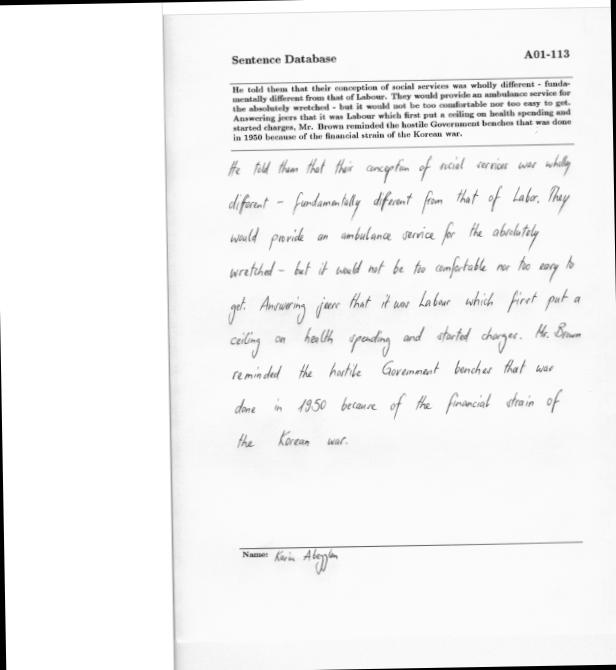 Sentence Database
A01-113
He told them that their conception of social services was wholly different - funda-
mentally different from that of Labour. They would provide an ambulance service for
the absolutely wretched - but it would not be too comfortable nor too easy to get.
Answering jeers that it was Labour which first put a ceiling on health spending and
started charges, Mr. Brown reminded the hostile Government benches that was done
in 1950 because of the financial strain of the Korean war.
He told them that their conception of social services was wholly
different - fundamentally different from that of Labor. They
would provide an ambulance service for the absolutely
wretched - but it would not be too comfortable nor too easy to
get. Answering jeers that it was Labour which first put a
ceiling on health spending and started charges. Mr. Brown
reminded the hostile Government benches that was
done in 1950 because of the financial strain of
the Korean war.
Name: Karin Abegglen